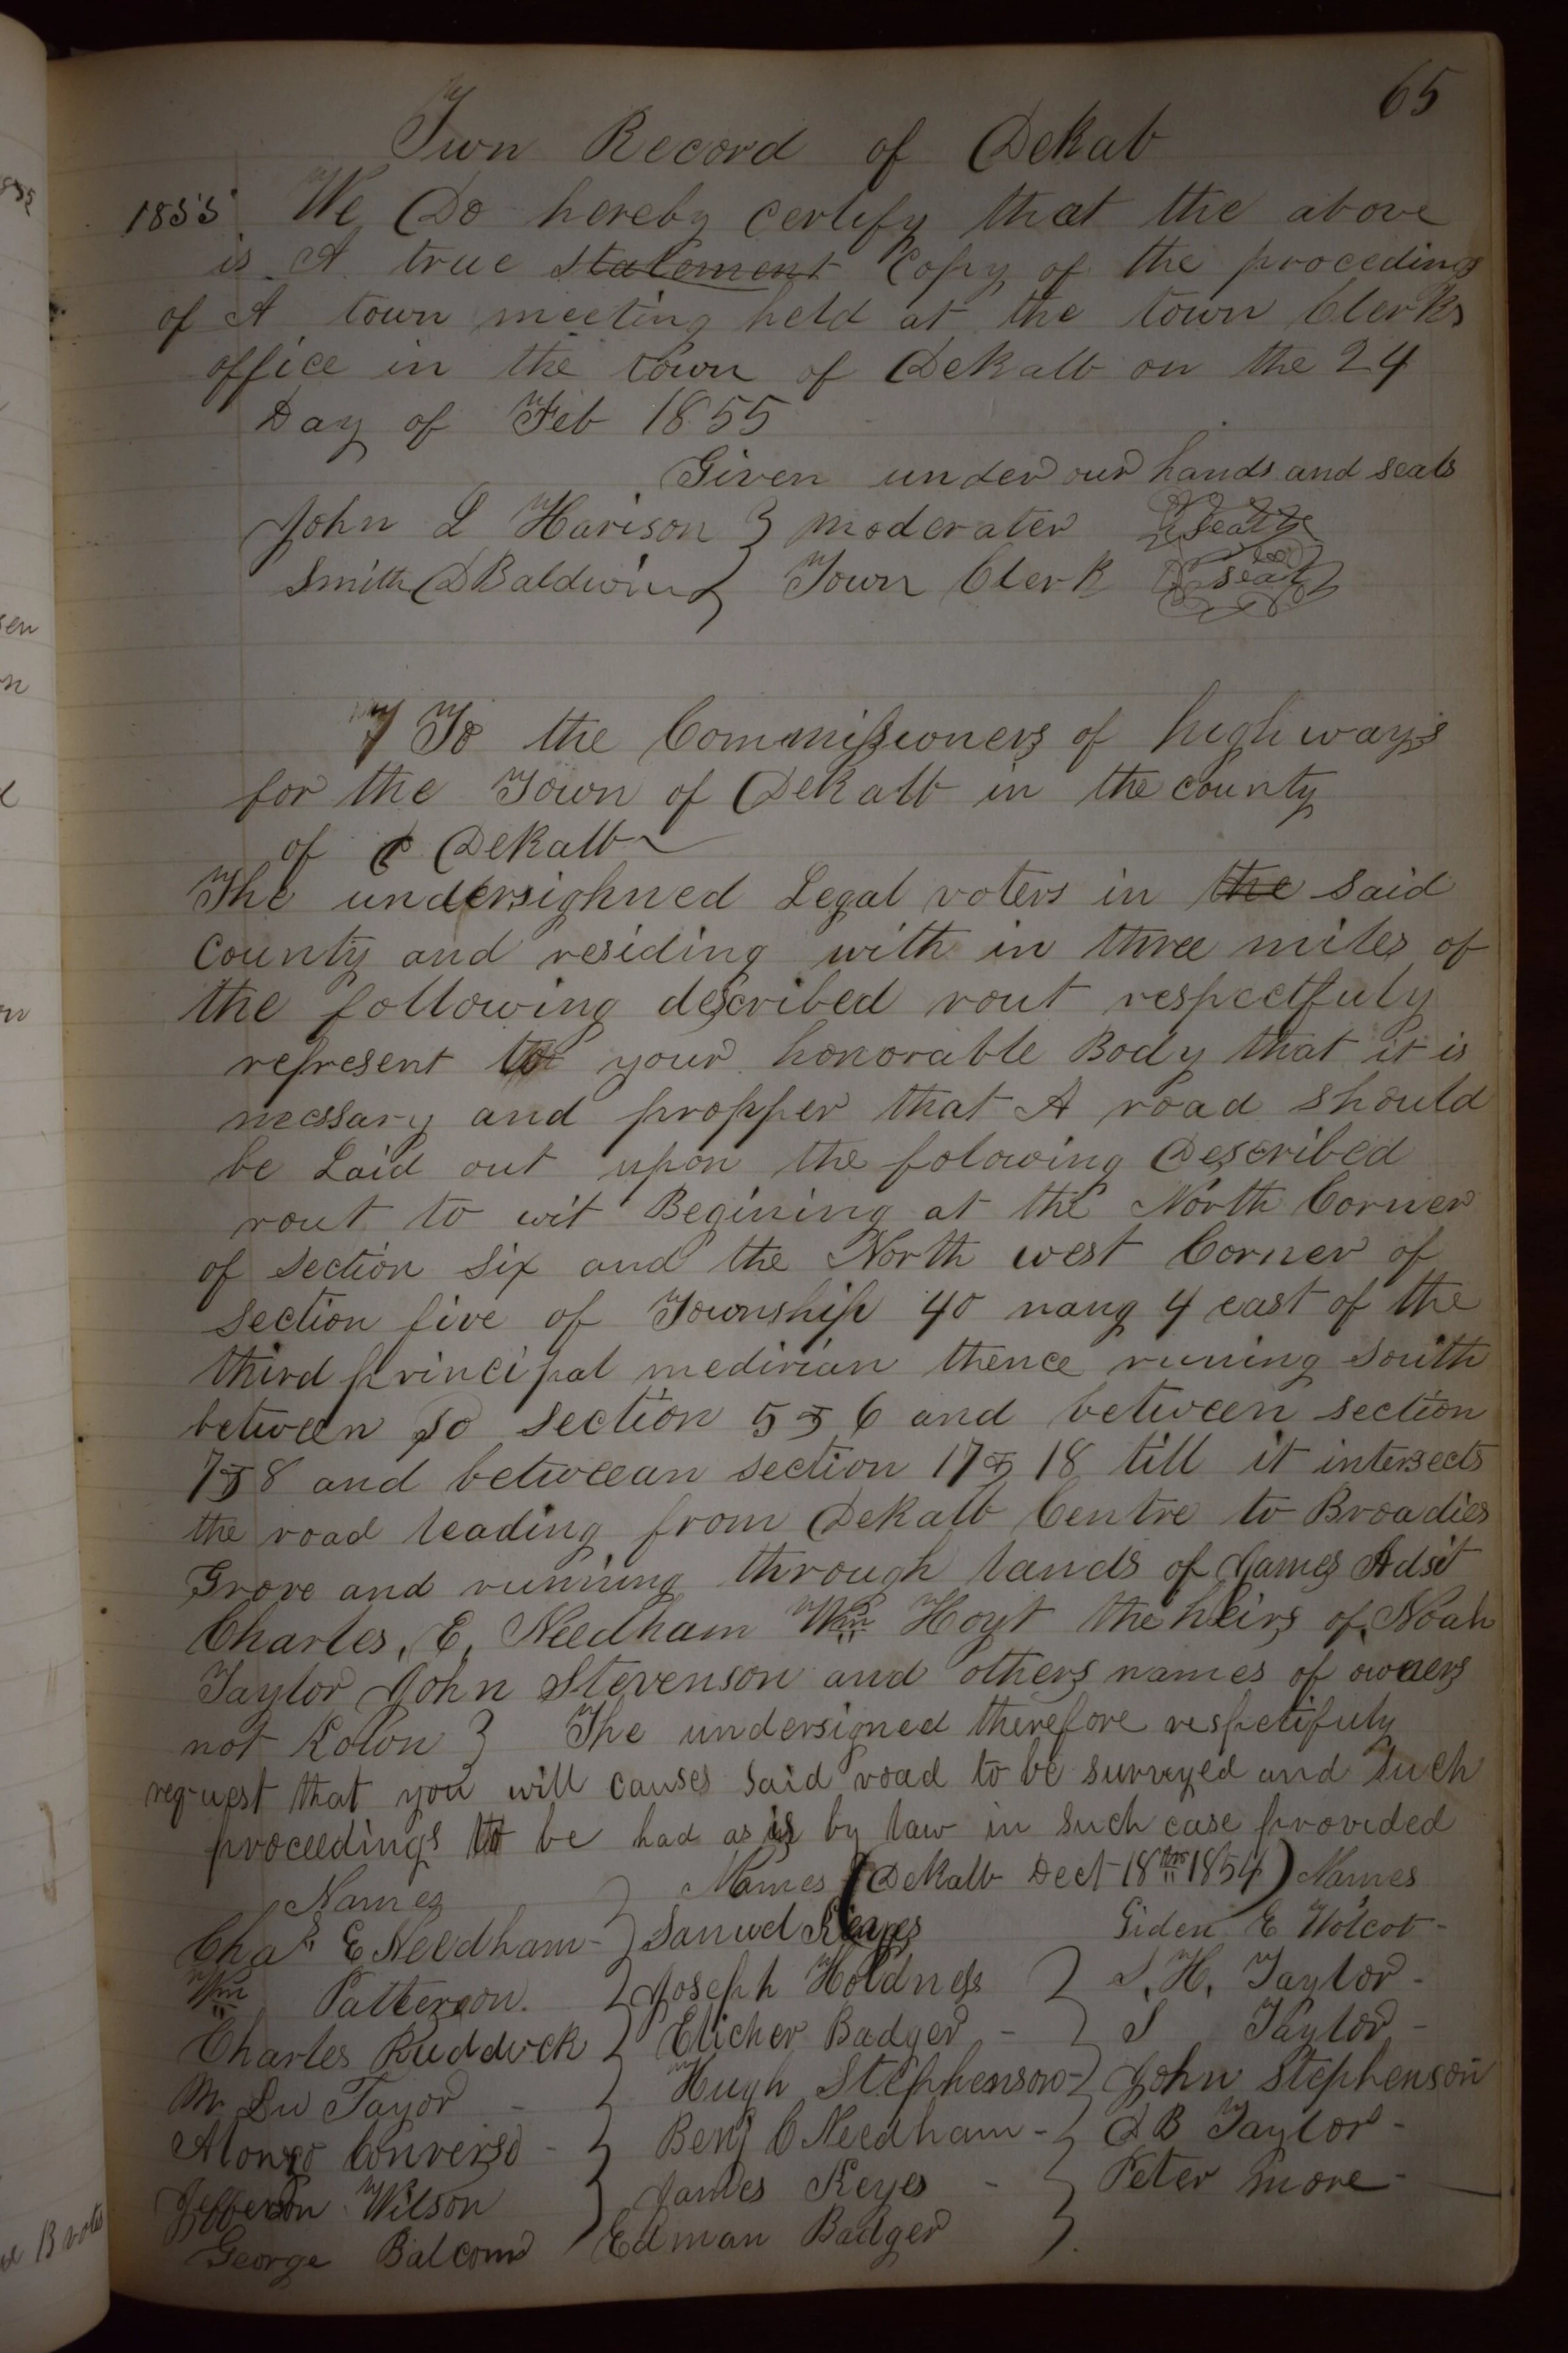 65
Town Record of Dekab
1855 We Do hereby certify that the above
is A true statement Copy of the proceding
of A town meeting held at the town Clerks
office in the town of Dekalb on the 24
Day of Feb 1855
Given under our hands and seals
John L Harison } moderater seal
Smith D Baldwin } Town Clerk seal
To the Commissioners of highways
for the Town of Dekalb in the county
of Dekalb
The undersighned Legal voters in the said
County and residing with in three miles of
the following described rout respectfuly
represent to your honorable Body that it is
necssary and propper that A road should
be Laid out upon the folowing Described
rout to wit Begining at the North Corner
of section six and the North west Corner of
section five of Township 40 rang 4 east of the
third principal medirian thence runing south
between so section 5 & 6 and between section
7 & 8 and betweean section 17 & 18 till it intersects
the road leading from Dekalb Centre to Broadies
Grove and running through lands of James Adsit
Charles, E, Needham Wm Hoyt the heirs of Noah
Taylor John Stevenson and others names of owners
not Kown } The undersigned therefore respetifuly
request that you will causes said road to be surveyed and such
proceedings to be had as is by law in such case provided
Names } Names (Dekalb Dect 18th 1854) Names
Chas E Needham - } Samuel Keyes Giden E Wolcot -
Wm Patterson. } Joseph Holdness } S. H. Taylor -
Charles Ruddock } Elicher Badger - } S Taylor -
Mr Du Tayor - } Hugh Stephenson - } John Stephenson
Alonzo Converso - } Benj C Needham - } D B Taylor -
Jefferson Wilson } James Keyes - } Peter more -
George Balcom } Edman Badger }.